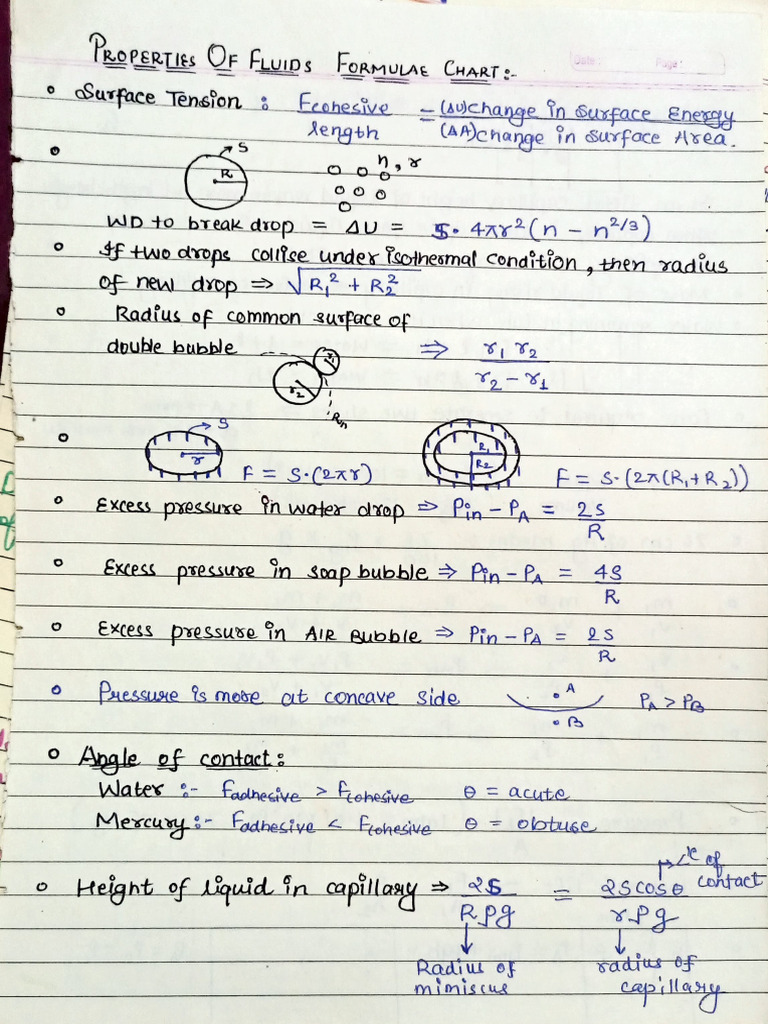 PROPERTIES OF FLUIDS FORMULAE CHART:-
Date: Page:
Surface Tension : Fcohesive / length = (ΔU)change in Surface Energy / (ΔA)change in Surface Area.
S R n, r
WD to break drop = ΔU = S. 4πr²(n - n^2/3)
If two drops collise under isothermal condition, then radius
of new drop ⇒ √R₁² + R₂²
Radius of common surface of
double bubble r₁ r₂ Rn ⇒ r₁ r₂ / r₂ - r₁
S r F = S.(2πr) R₁ R₂ F = S.(2π(R₁+R₂))
Excess pressure in water drop ⇒ Pin - PA = 2S / R
Excess pressure in soap bubble ⇒ Pin - PA = 4S / R
Excess pressure in AIR Bubble ⇒ Pin - PA = 2S / R
Pressure is more at concave side .A .B PA > PB
Angle of contact:
Water :- Fadhesive > Fcohesive θ = acute
Mercury:- Fadhesive < Fcohesive θ = obtuse
Height of liquid in capillary ⇒ 2S / Rρg = 2Scosθ / rρg ∠le of contact
Radius of mimiscus
radius of capillary